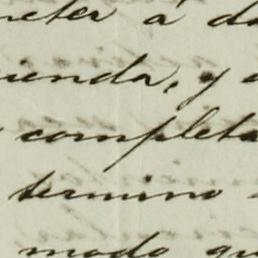 meter á da
ienda, y
completa
termino
modo qu